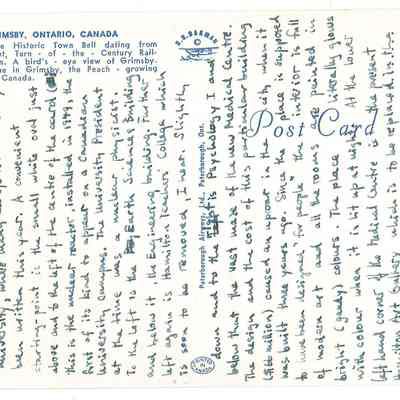 RIMSBY, ONTARIO, CANADA
e Historic Town Bell dating from
t, Turn - of - the - Century Rail-
n. A bird's - eye view of Grimsby.
ne in Grimsby, the Peach - growing
Canada.
S.R. BERMAN
Post Card
Peterborough Airways, Ltd., Peterborough, Ont.
PRINTED IN CANADA
been written this year. A convenient
starting-point is the small whole oval just
above and to the left of the centre of the card
this is the nuclear reactor installed in 1959, the
first of its kind to appear on a Canadian
University Campus. The University President
at the time was a nuclear physicist.
To the left is the Earth Sciences Building
and below it, the Engineering building. Further
left again is Hamilton Teachers College which
is soon to be removed, I hear. Slightly
down and to the is Psychology I and
below that the vast maze of the new Medical Centre.
The design and the cost of this particular building
($66 million) caused an uproar in the city when it
was built three years ago. Since the place is supposed
to have been designed for "people", the interior is full
of modern art and all the rooms are painted in
bright (gaudy) colours. The place literally glows
with colour when it is lit up at night. At the lower
left hand corner of the Medical Centre is the present
Hamilton Art Gallery which is to be replaced. In this